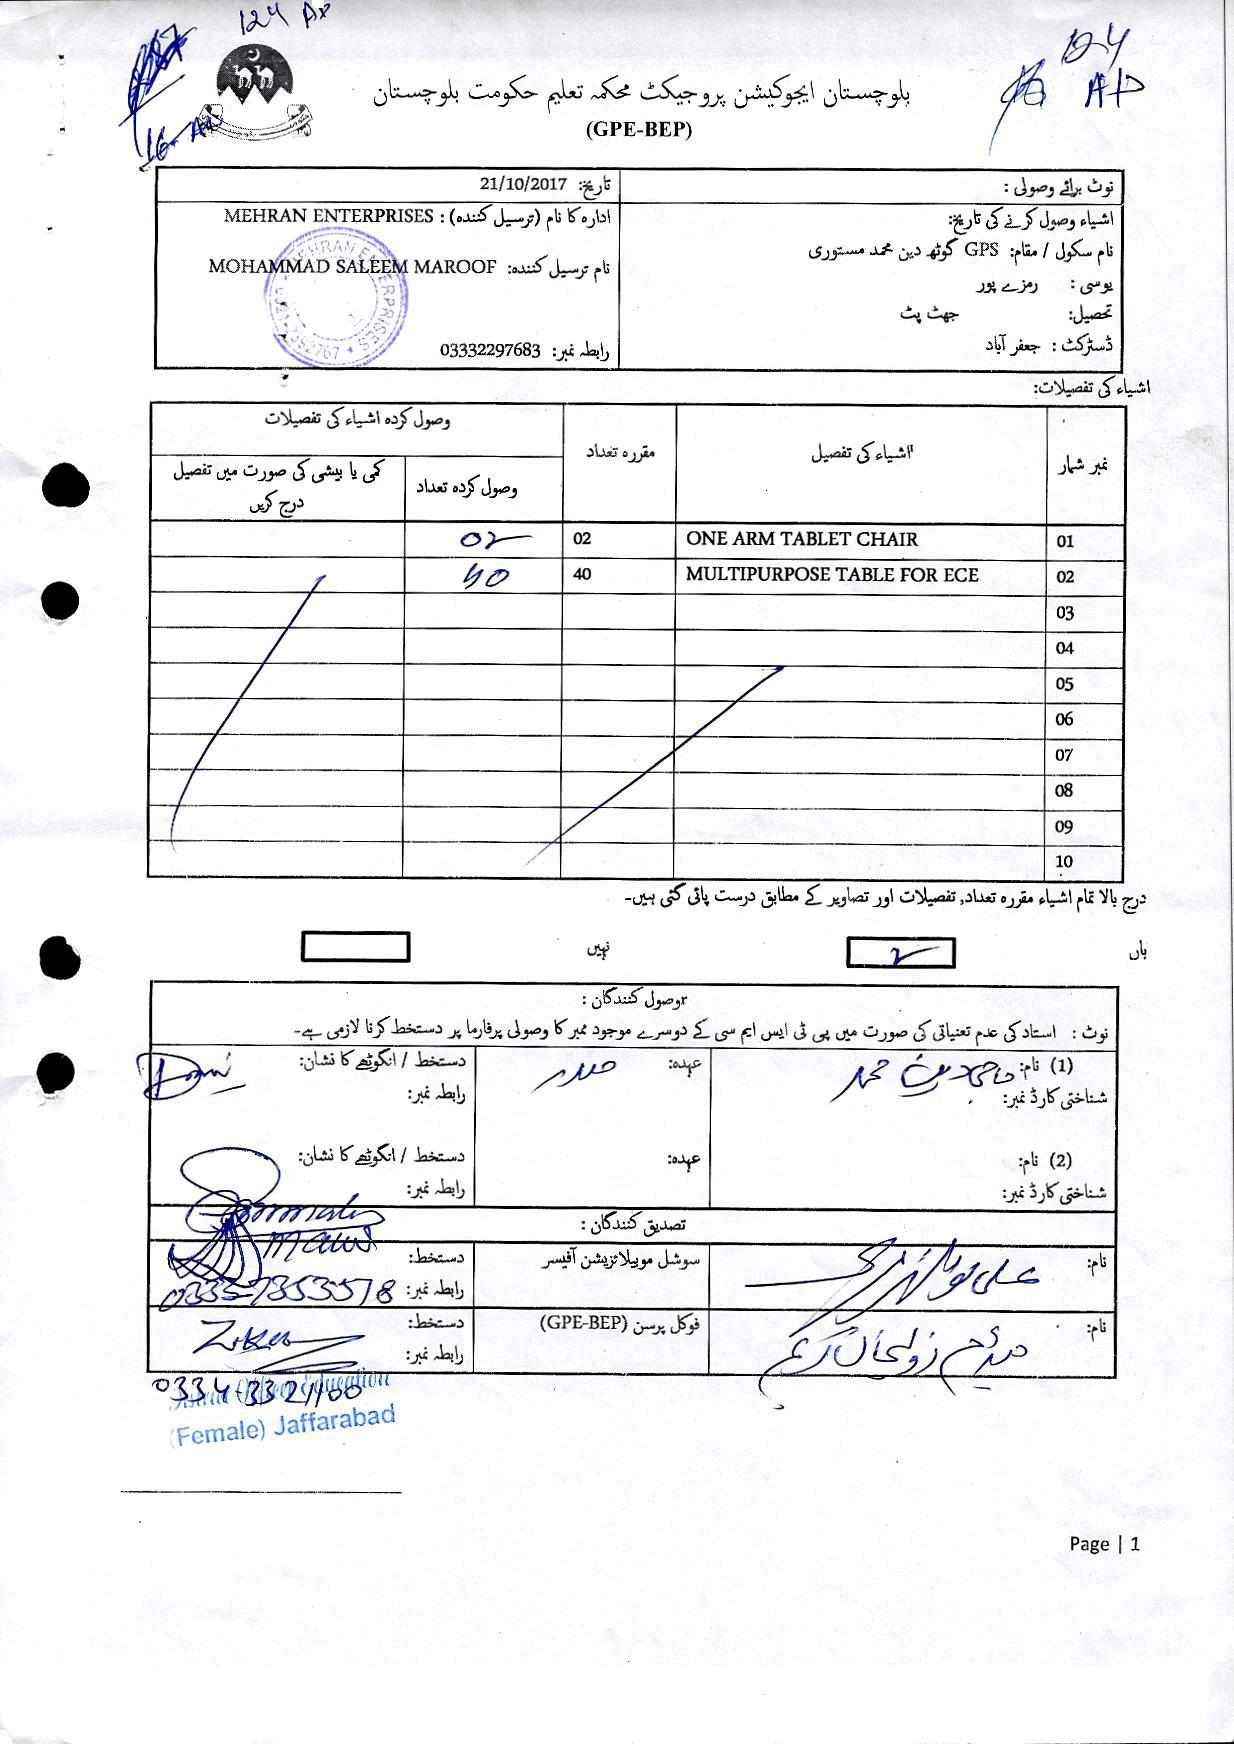 124 AP
124
AP
بلوچستان ایجوکیشن پروجیکٹ محکمہ تعلیم حکومت بلوچستان
(GPE-BEP)
نوٹ برائے وصولی :
تاریخ: 21/10/2017
اشیاء وصول کرنے کی تاریخ:
نام سکول / مقام: GPS گوٹھ دین محمد مستوری
یوسی : رمزے پور
تحصیل: جھٹ پٹ
ڈسٹرکٹ : جعفر آباد
ادارہ کا نام (ترسیل کنندہ) : MEHRAN ENTERPRISES
نام ترسیل کنندہ: MOHAMMAD SALEEM MAROOF
رابطہ نمبر: 03332297683
MEHRAN ENTERPRISES
اشیاء کی تفصیلات:
نمبر شمار اشیاء کی تفصیل مقررہ تعداد وصول کردہ اشیاء کی تفصیلات
وصول کردہ تعداد کمی یا بیشی کی صورت میں تفصیل درج کریں
01 ONE ARM TABLET CHAIR 02 02
02 MULTIPURPOSE TABLE FOR ECE 40 40
03
04
05
06
07
08
09
10
درج بالا تمام اشیاء مقررہ تعداد, تفصیلات اور تصاویر کے مطابق درست پائی گئی ہیں۔
ہاں نہیں
وصول کنندگان :
نوٹ : استاد کی عدم تعنیاتی کی صورت میں پی ٹی ایس ایم سی کے دوسرے موجود ممبر کا وصولی پرفارما پر دستخط کرنا لازمی ہے۔
(1) نام: حاجی دین محمد عہدہ: صدر دستخط / انگوٹھے کا نشان:
شناختی کارڈ نمبر: رابطہ نمبر:
(2) نام: عہدہ: دستخط / انگوٹھے کا نشان:
شناختی کارڈ نمبر: رابطہ نمبر:
تصدیق کنندگان :
نام: سوشل موبیلائزیشن آفیسر دستخط:
رابطہ نمبر: 03337353578
نام: فوکل پرسن (GPE-BEP) دستخط:
رابطہ نمبر:
0334-3321100
Education
(Female) Jaffarabad
Page | 1